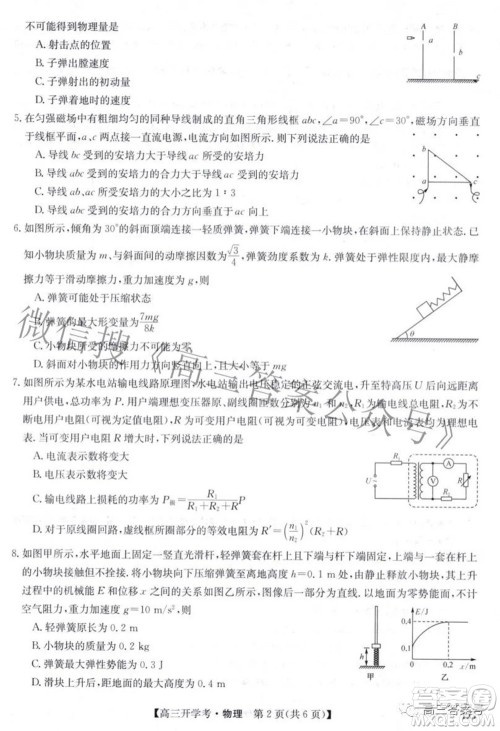 不可能得到物理量是
A. 射击点的位置
B. 子弹出膛速度
C. 子弹射出的初动量
D. 子弹着地时的速度
A B
a
b
5. 在匀强磁场中有粗细均匀的同种导线制成的直角三角形线框 abc,∠a=90°,∠c=30°,磁场方向垂
直于线框平面,a、c 两点接一直流电源,电流方向如图所示.则下列说法正确的是
A. 导线 bc 受到的安培力大于导线 ac 受到的安培力
B. 导线 abc 受到的安培力的合力大于导线 ac 受到的安培力
C. 导线 ab、ac 受到的安培力大小之比为 1∶3
D. 导线 abc 受到的安培力的合力垂直于 ac 向上
b
a c
6. 如图所示,倾角为 30°的斜面顶端连接一轻质弹簧,弹簧下端连接一小物块在斜面上保持静止状态.已
知小物块质量为 m,与斜面间的动摩擦因数为√3/4,弹簧劲度系数为 k,弹簧始终处于弹性限度内,最大
静摩擦力等于滑动摩擦力,重力加速度为 g,则
A. 弹簧可能处于压缩状态
B. 弹簧的最大形变量为7mg/8k
C. 小物块受到的摩擦力不可能为零
D. 斜面对小物块作用力的方向可能竖直向上
θ
7. 如图所示为某水电站输电线路原理图,水电站输送电压稳定的正弦交流电,升至特高压 U 后向远距离
用户供电,总功率为 P.用户端理想变压器原、副线圈匝数分别为 n₁ 和 n₂,R₁ 为输电线总电阻,R₂为不
断电用户电阻(可视为定值电阻),R 为可变用户电阻(可视为可变电阻).电压表和电流表均为理想电
表.当可变用户电阻 R 增大时,下列说法正确的是
A. 电流表示数将变大
B. 电压表示数将变大
C. 输电线路上损耗的功率为 P损=R₁/(R₁+R₂+R) P
D. 对于原线圈回路,虚线框所圈部分的等效电阻为 R′=(n₁/n₂)²(R₂+R)
U R₁ V A R₂ R
8. 如图甲所示,水平地面上固定一竖直光滑杆,轻弹簧套在杆上且下端与杆下端固定,上端与一套在杆上
的小物块接触但不拴接.将小物块向下压缩弹簧至离地高度 h=0.1 m 处,由静止释放小物块,其上升
过程中的机械能 E 和位移 x 之间的关系如图乙所示,图像后一部分为直线.以地面为零势能面,不计
空气阻力,重力加速度 g=10 m/s²,则
A. 轻弹簧原长为 0.2 m
B. 小物块的质量为 0.2 kg
甲
E/J
0.4
0.1
乙
【高三开学考·物理 第 2 页(共 6 页)】
微信搜《高三答案公众号》